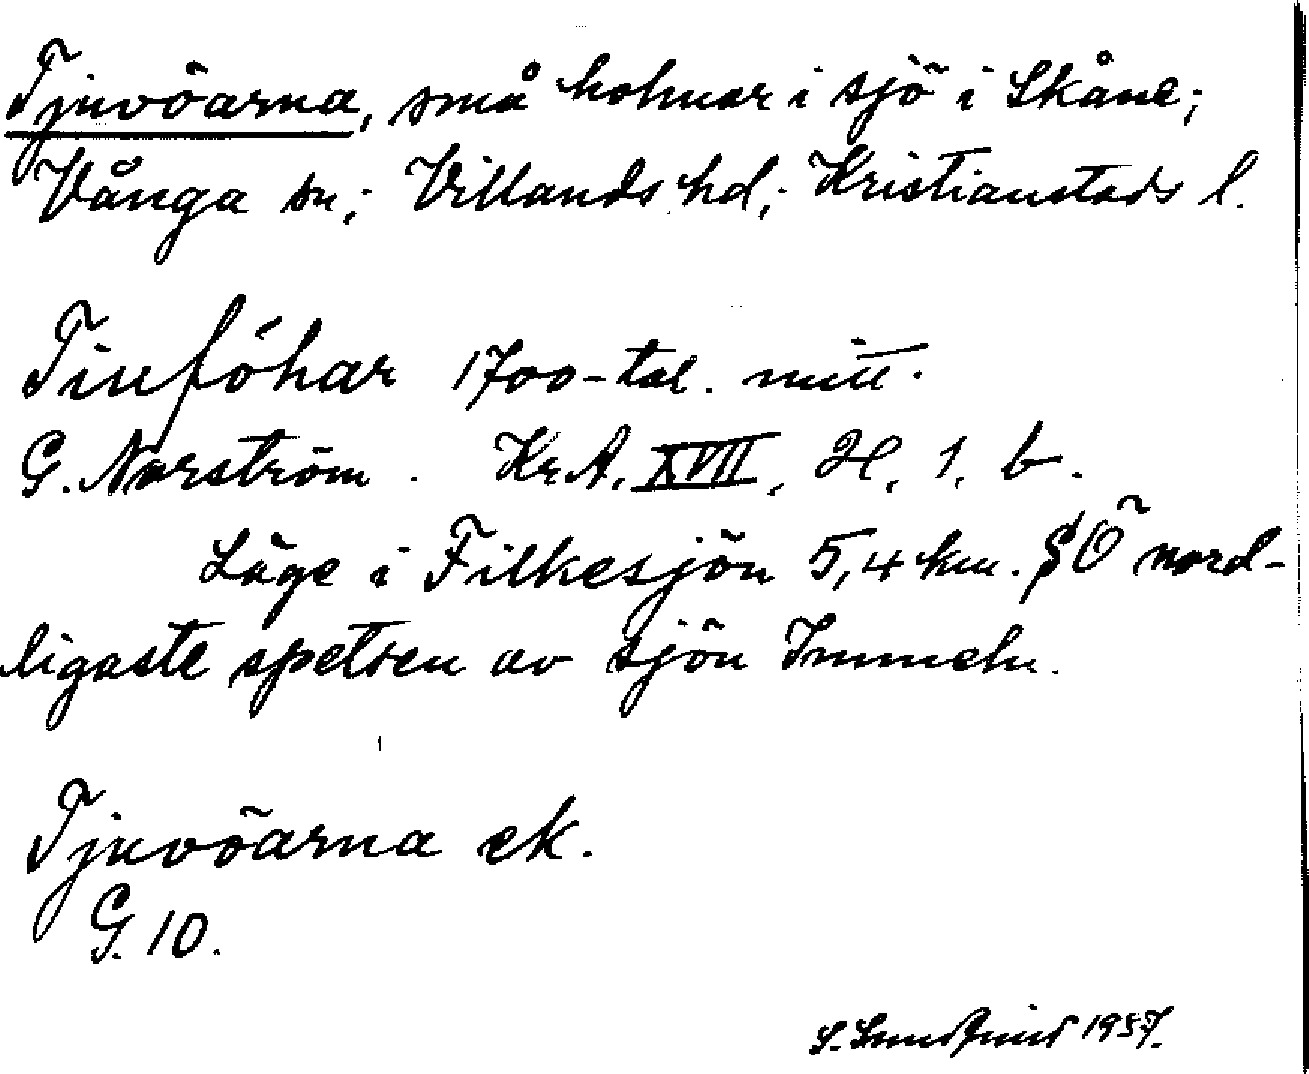 Tjuvöarna, små holmar i sjö i Skåne;
Vånga sn.; Villands hd.; Kristianstads l.
Tiufóhar 1700-tal. mitt.
G. Norström. Kr.A. XVII, H, 1, b.
Läge i Filkesjön 5,4 km. SÖ nord-
ligaste spetsen av sjön Immeln.
Tjuvöarna ek.
G. 10.
1957.